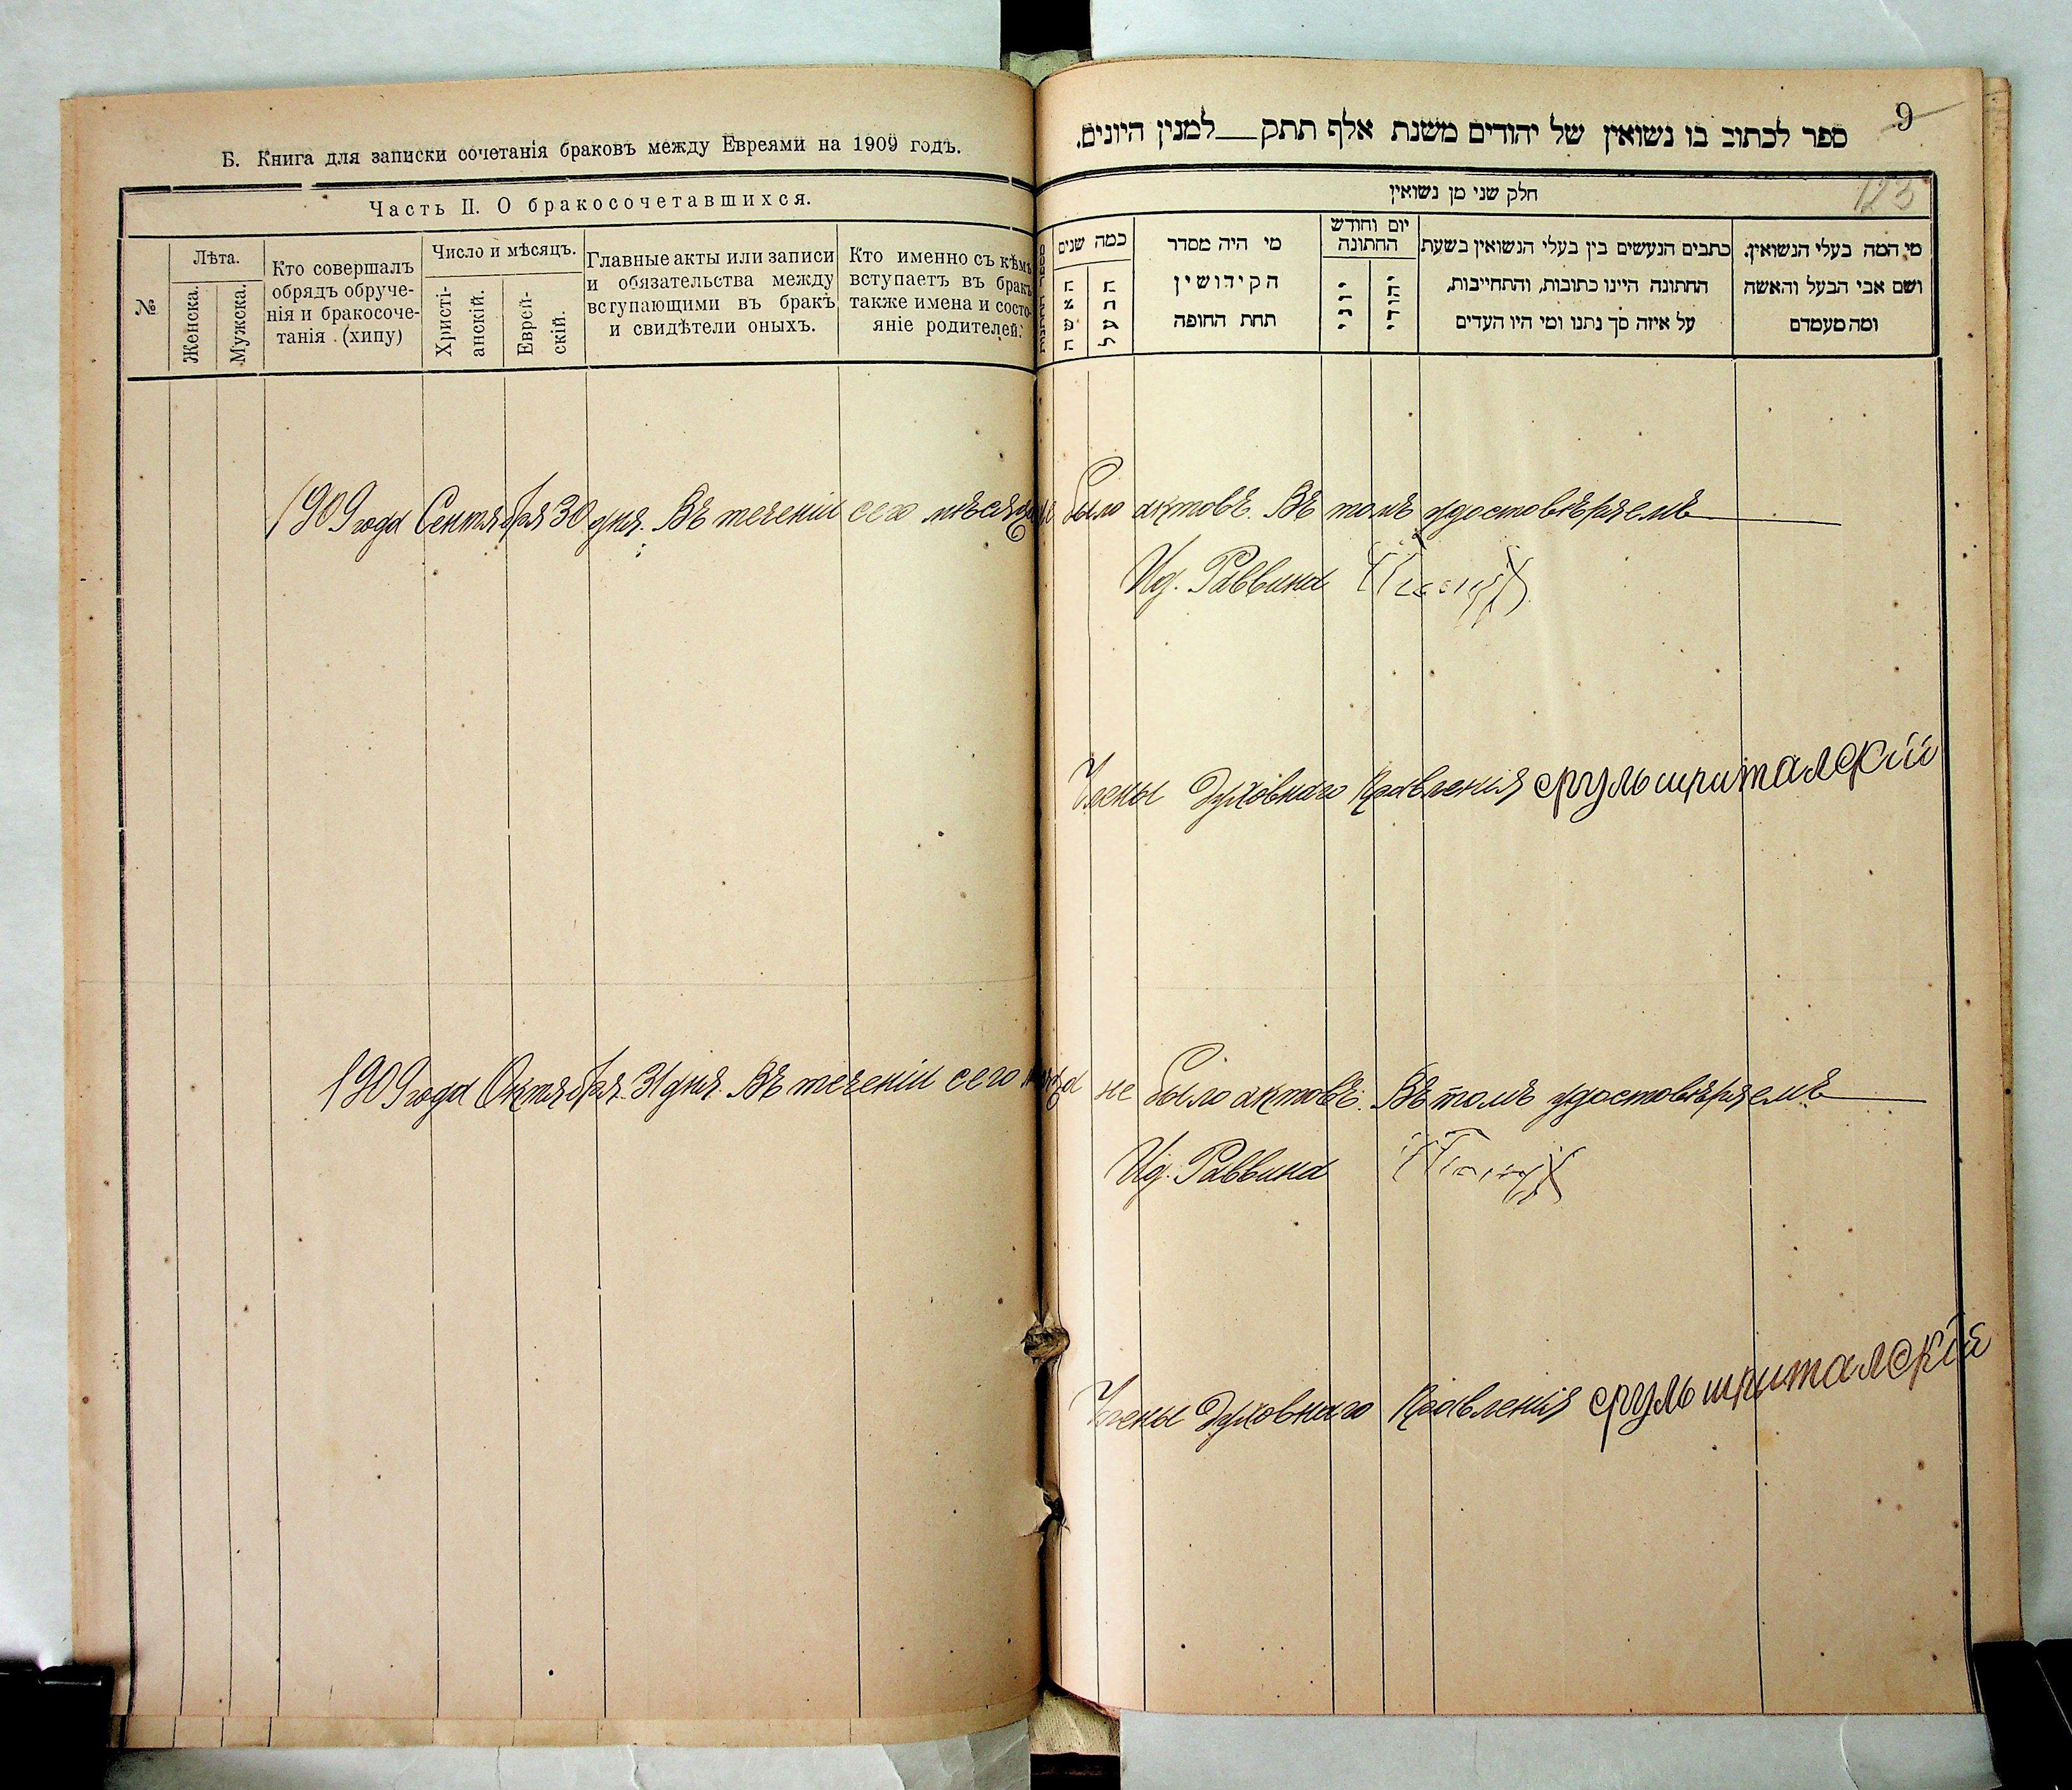 Б. Книга для записки сочетанія браковъ между Евреями на 1909 годъ.
Часть II. О бракосочетавшихся.
№
Лѣта.
Женска.
Мужска.
Кто совершалъ
обрядъ обруче-
нія и бракосоче-
танія (хипу)
Число и мѣсяцъ.
Христі-
анскій.
Еврей-
скій.
Главные акты или записи
и обязательства между
вступающими въ бракъ
и свидѣтели оныхъ.
Кто именно съ кѣмъ
вступаетъ въ бракъ
также имена и состо-
яніе родителей.
9
ספר לכתוב בו נשואין של יהודים משנת אלף תתק למנין היונים.
123
חלק שני מן נשואין
מי המה בעלי הנשואין.
ושם אבי הבעל והאשה
ומה מעמדם
כתבים הנעשים בין בעלי הנשואין בשעת
החתונה היינו כתובות, והתחייבות,
על איזה סך נתנו ומי היו העדים
יום וחודש
החתונה
יהודי
יוני
מי היה מסדר
הקידושין
תחת החופה
כמה שנים
הבעל
האשה
1909 года Сентября 30 дня. Въ теченіи сего мѣсяца было актовъ. Въ томъ удостовѣряемъ
Ид. Раввина
Члены Духовнаго Правленія сруль шриталскій
1909 года Октября 31 дня. Въ теченіи сего не было актовъ. Въ томъ удостовѣряемъ
Ид. Раввина
Члены Духовнаго Правленія сруль шриталскій